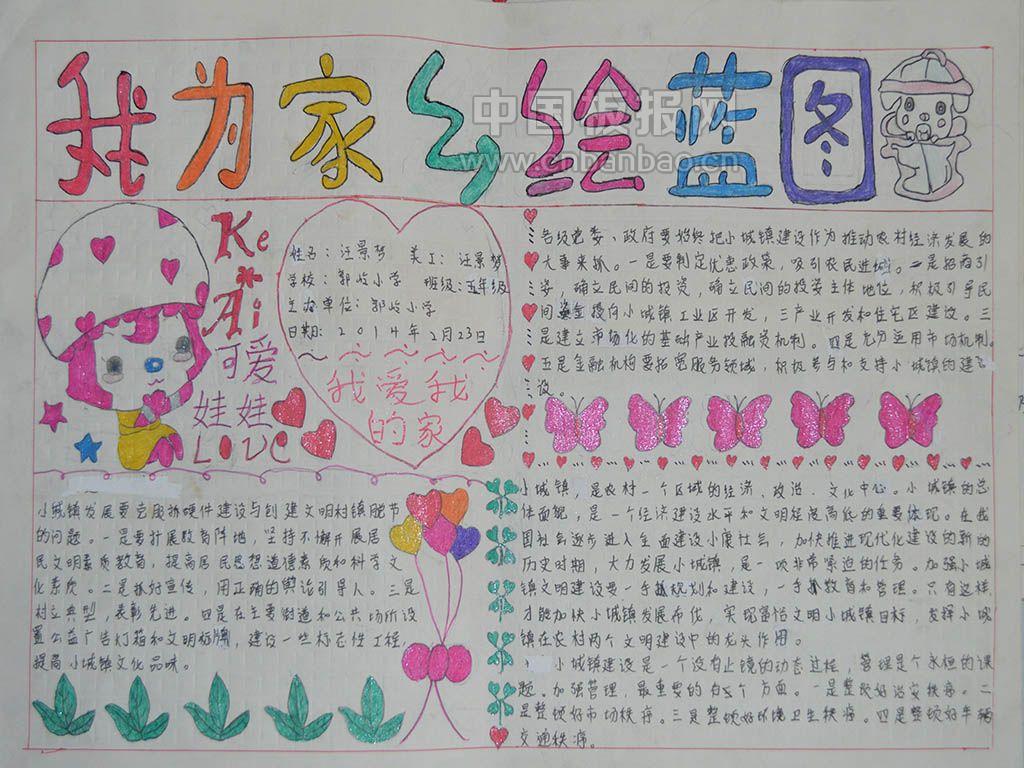 我为家乡绘蓝图
中国板报网
www.cnbanbao.cn
Ke
Ai
可爱
娃娃
LOVE
姓名:汪景梦 美工:汪景梦
学校:郭岭小学 班级:五年级
主办单位:郭岭小学
日期:2014年2月23日
我爱我
的家
各级党委、政府要始终把小城镇建设作为推动农村经济发展的
大事来抓。一是要制定优惠政策,吸引农民进城。二是招商引
资,确立民间的投资,确立民间的投资主体地位,积极引导民
间资金投向小城镇工业区开发,三产业开发和住宅区建设。三
是建立市场化的基础产业投融资机制。四是充分运用市场机制。
五是金融机构要拓宽服务领域,积极参与和支持小城镇的建
设。
小城镇发展要克服抓硬件建设与创建文明村镇脱节
的问题。一是要扩展教育阵地,坚持不懈开展居
民文明素质教育,提高居民思想道德素质和科学文
化素质。二是抓好宣传,用正确的舆论引导人。三是
树立典型,表彰先进。四是在主要街道和公共场所设
置公益广告灯箱和文明标牌,建设一些标志性工程,
提高小城镇文化品味。
小城镇,是农村一个区域的经济、政治、文化中心。小城镇的总
体面貌,是一个经济建设水平和文明程度高低的重要体现。在我
国社会逐步进入全面建设小康社会,加快推进现代化建设的新的
历史时期,大力发展小城镇,是一项非常紧迫的任务。加强小城
镇文明建设要一手抓规划和建设,一手抓教育和管理。只有这样,
才能加快小城镇发展布伐,实现富裕文明小城镇目标,发挥小城
镇在农村两个文明建设中的龙头作用。
小城镇建设是一个没有止境的动态过程,管理是个永恒的课
题。加强管理,最重要的有5个方面。一是整顿好治安秩序。二
是整顿好市场秩序。三是整顿好环境卫生秩序。四是整顿好车辆
交通秩序。